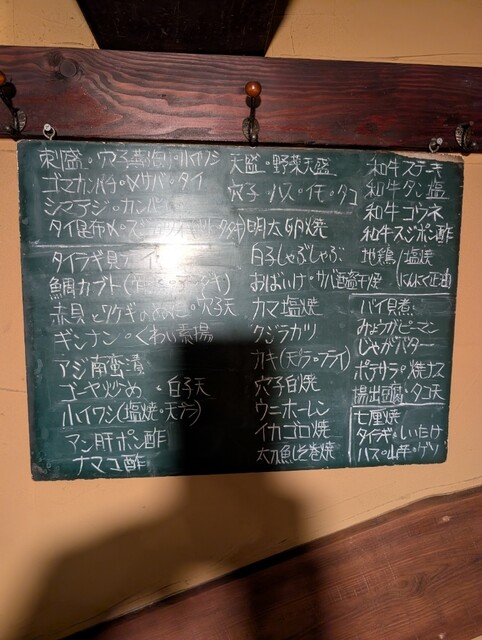 刺盛・穴子薄造り・小イワシ
ゴマカンパチ・〆サバ・タイ
シマアジ・カンパ
タイ昆布〆
タイラギ貝
鯛カブト
赤貝とワケギのぬた・穴子天
ギンナン・くわい素揚
アジ南蛮漬
ゴーヤ炒め・白子天
小イワシ(塩焼・天プラ)
アン肝ポン酢
ナマコ酢
天盛・野菜天盛
穴子・ハス・イモ・タコ
明太卵焼
白子しゃぶしゃぶ
おばいけ・サバ酒粕干焼
カマ塩焼
クジラカツ
カキ(天プラ・フライ)
穴子白焼
ウニホーレン
イカゴロ焼
太刀魚しそ巻焼
和牛ステーキ
和牛タン塩
和牛コウネ
和牛スジポン酢
地鶏/塩焼
にんにく正油
バイ貝煮
みょうがピーマン
じゃがバター
ポテサラ・焼ナス
揚出豆腐・タコ天
七厘焼
タイラギ・しいたけ
ハス・山芋・ゲソ